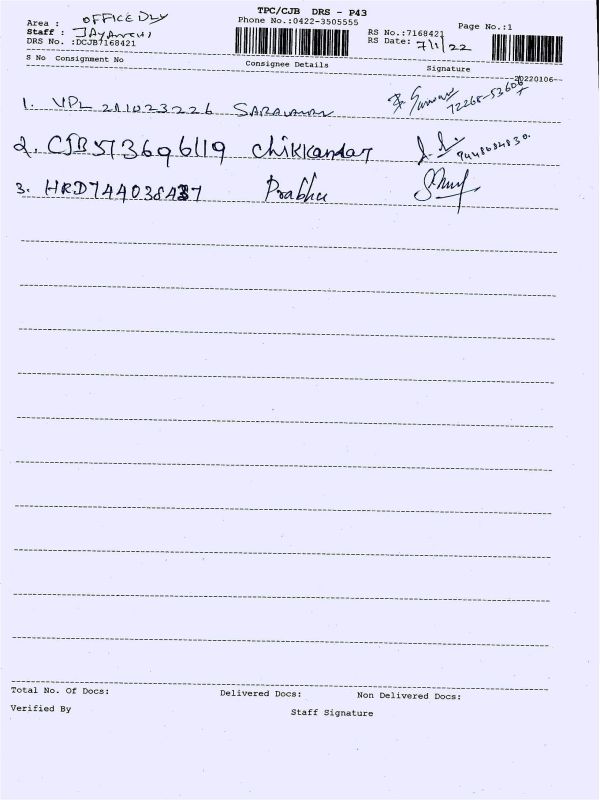 TPC/CJB DRS - P43
Area : OFFICE DLY
Phone No.:0422-3505555
Page No.:1
Staff : JAYANTHI
RS No.:7168421
DRS No. :DCJB7168421
RS Date: 7/1/22
S No Consignment No Consignee Details Signature
20220106
1. VPL 211023226 SARAVANAN 72268-53606
2. CJB573696119 Chikkandar
3. HRD744038437 Prabhu
Total No. Of Docs: Delivered Docs: Non Delivered Docs:
Verified By Staff Signature